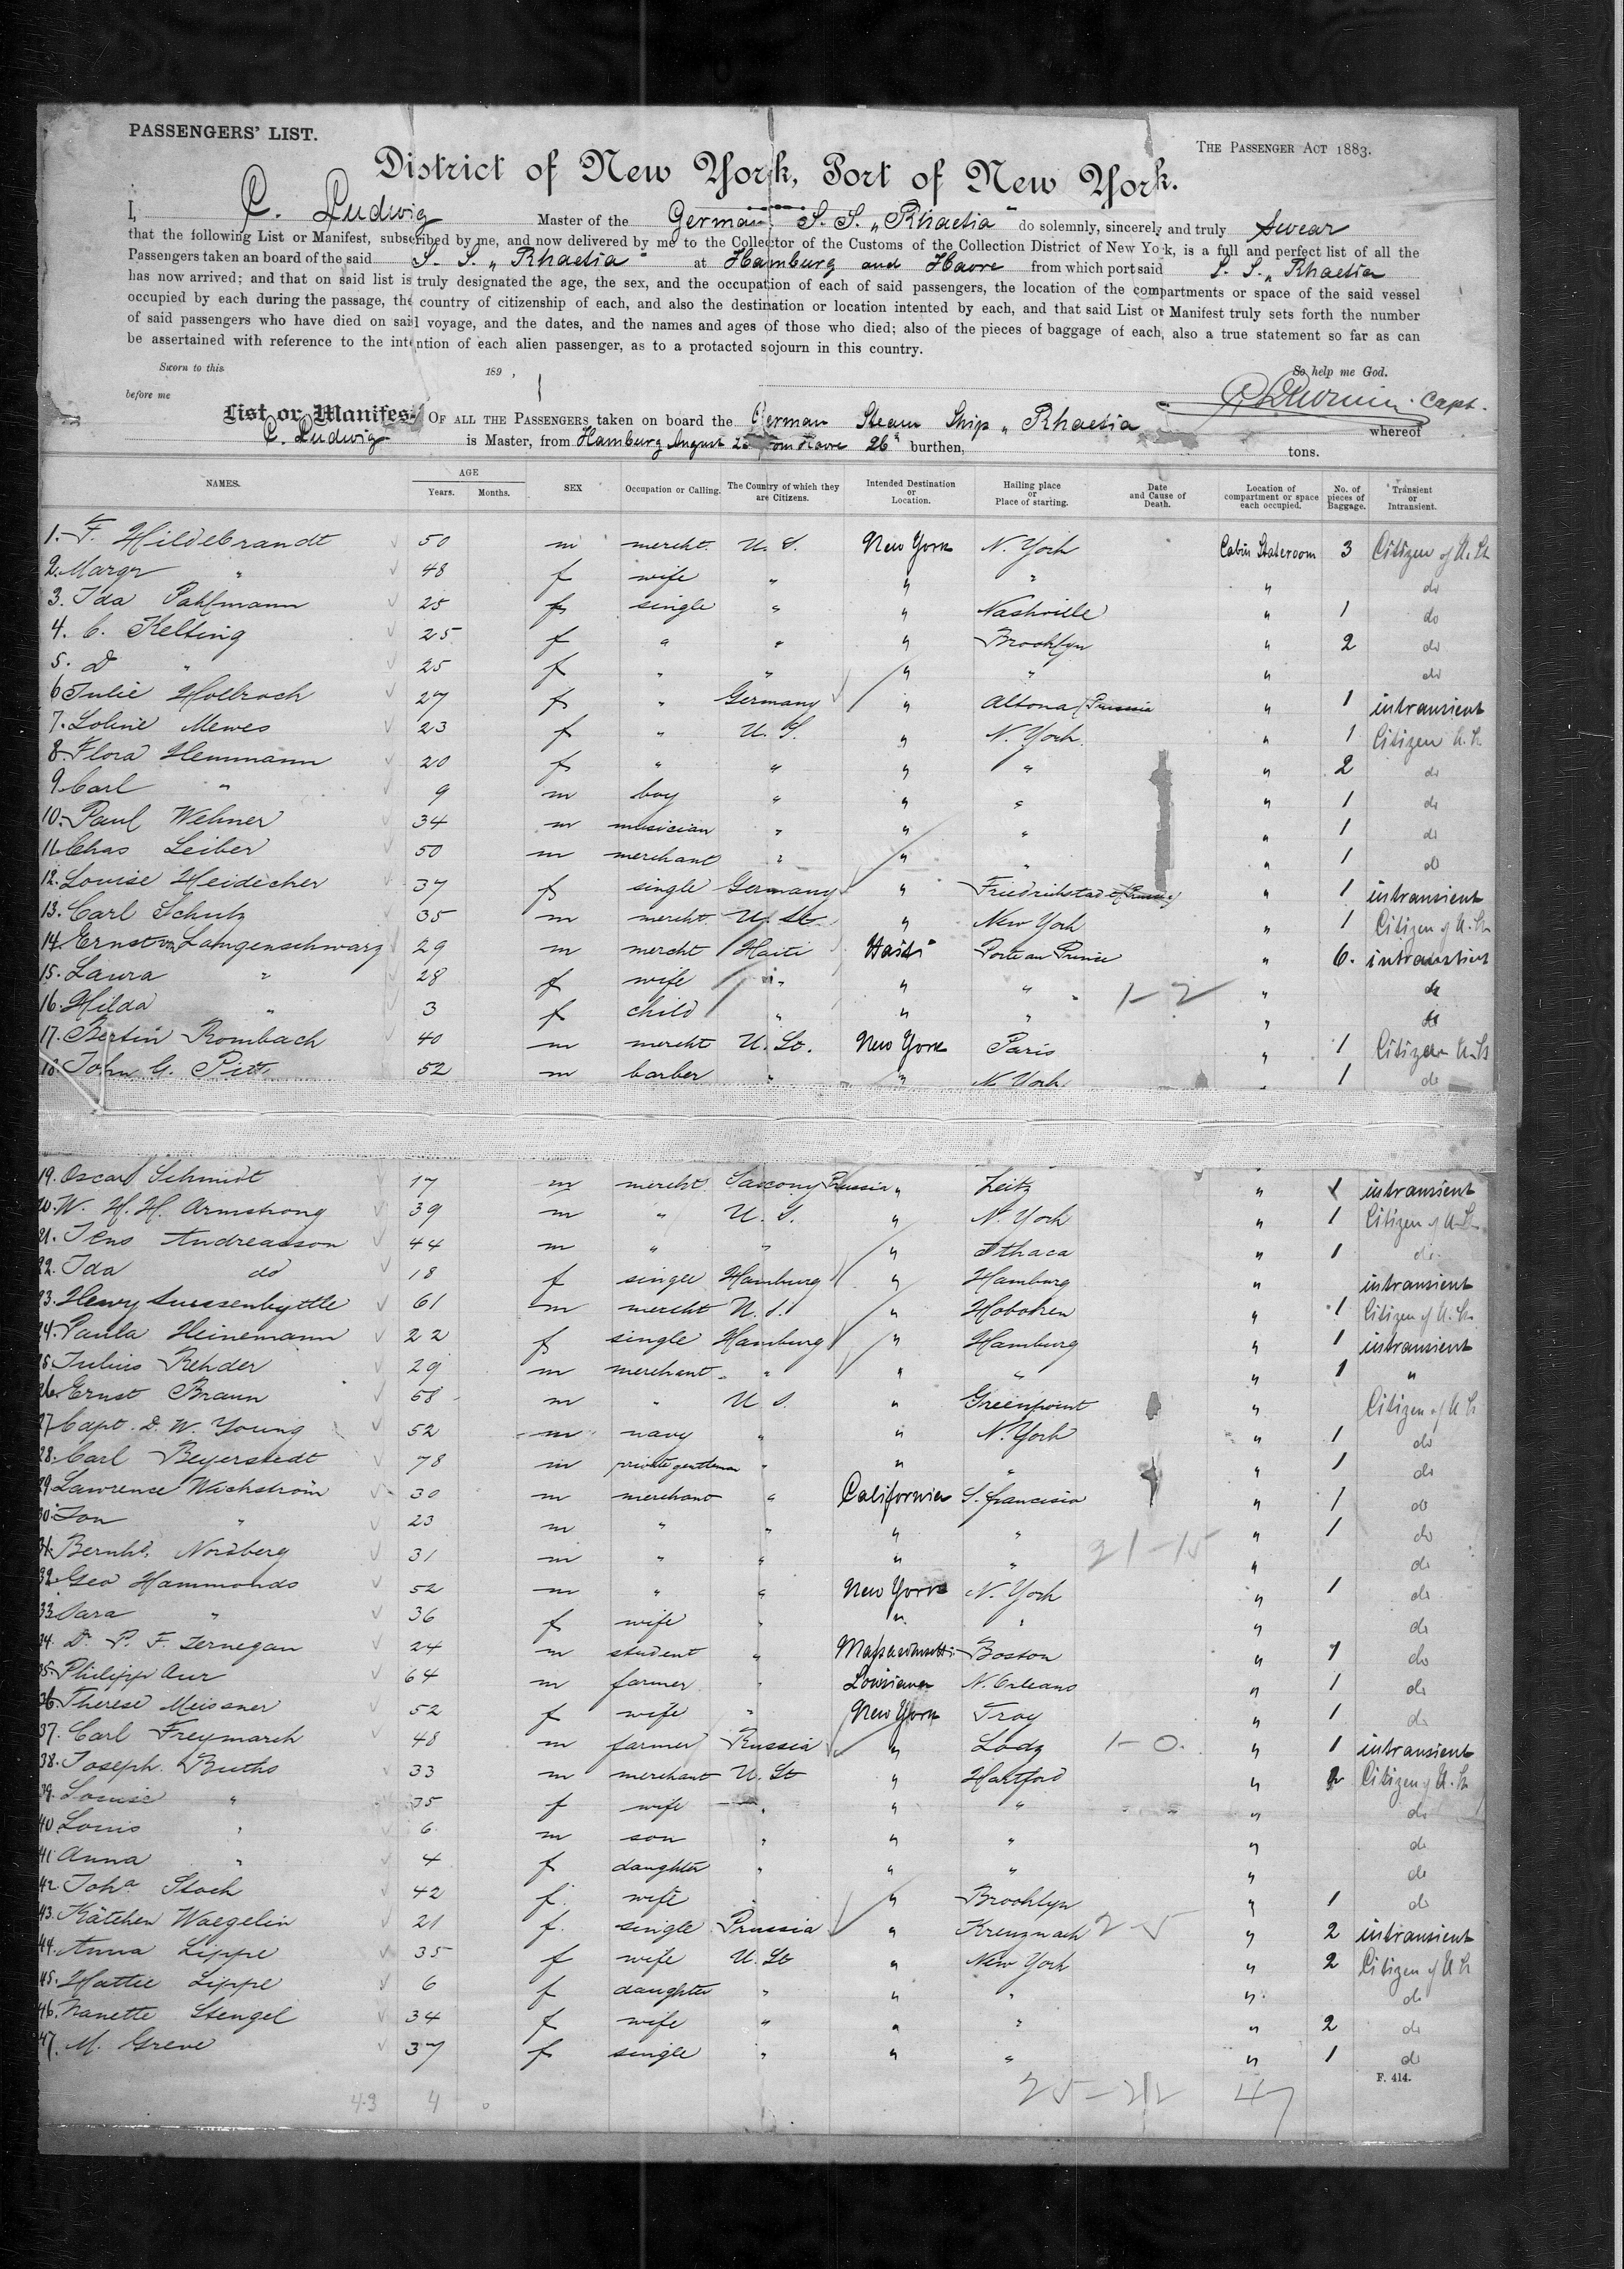 PASSENGERS' LIST.
THE PASSENGER ACT 1883.
District of New York, Port of New York.
I, C. Ludwig Master of the German S. S. „Rhaetia" do solemnly, sincerely and truly swear
that the following List or Manifest, subscribed by me, and now delivered by me to the Collector of the Customs of the Collection District of New York, is a full and perfect list of all the
Passengers taken an board of the said S. S. „Rhaetia" at Hamburg and Havre from which port said S. S. „Rhaetia
has now arrived; and that on said list is truly designated the age, the sex, and the occupation of each of said passengers, the location of the compartments or space of the said vessel
occupied by each during the passage, the country of citizenship of each, and also the destination or location intented by each, and that said List or Manifest truly sets forth the number
of said passengers who have died on said voyage, and the dates, and the names and ages of those who died; also of the pieces of baggage of each, also a true statement so far as can
be assertained with reference to the intention of each alien passenger, as to a protacted sojourn in this country.
Sworn to this 189 , So help me God.
before me Capt.
List or Manifest OF ALL THE PASSENGERS taken on board the German Steam Ship „Rhaetia whereof
C. Ludwig is Master, from Hamburg August Havre 26" burthen, tons.
NAMES. AGE Years. Months. SEX Occupation or Calling. The Country of which they are Citizens. Intended Destination or Location. Hailing place or Place of starting. Date and Cause of Death. Location of compartment or space each occupied. No. of pieces of Baggage. Transient or Intransient.
1. F. Hildebrandt 50 m mercht. U. S. New York N. York Cabin Stateroom 3 Citizen of U. St
2. Margr " 48 f wife " " " " do
3. Ida Pahlmann 25 f single " " Nashville " 1 do
4. C. Kelting 25 f " " " Brooklyn " 2 do
5. D " 25 f " " " " " do
6 Julie Hollroch 27 f " Germany " Altona / Prussia " 1 intransient
7. Loline Mewes 23 f " U. S. " N. York. " 1 Citizen U. St.
8. Flora Hemmann 20 f " " " " " 2 do
9. Carl " 9 m boy " " " " 1 do
10. Paul Wehner 34 m musician " " " " 1 do
11. Chas Leiber 50 m merchant " " " " 1 do
12. Louise Heidecher 37 f single Germany " Friedrichstadt " 1 intransient
13. Carl Schutz 35 m mercht. U. St. " New York " 1 Citizen of U. St
14. Ernst von Langenschwarz 29 m mercht Haiti Haiti Porte au Prince " 6. intransient
15. Laura " 28 f wife " " " " do
16. Hilda " 3 f child " " " 1-2 " do
17. Bertin Rombach 40 m mercht U. St. New York Paris " 1 Citizen U. St
18. John G. Pitt 52 m barber " " N. York " 1 do
19. Oscar Schmidt 17 m mercht. Saxony Prussia " Zeitz " 1 intransient
20. W. H. H. Armstrong 39 m " U. S. " N. York " 1 Citizen of U. St.
21. Jens Andreasson 44 m " " " Ithaca " 1 do.
22. Ida do 18 f single Hamburg " Hamburg " intransient
23. Henry 61 m mercht U. S. " Hoboken " 1 Citizen of U. St.
24. Paula Heinemann 22 f single Hamburg " Hamburg " 1 intransient
25 Julius Rehder 29 m merchant " " " " 1 "
26. Ernst Braun 58 m " U. S. " Greenpoint " Citizen of U. St
27 Capt. D. W. Young 52 m navy " " N. York " 1 do
28. Carl Beyerstedt 78 m private gentleman " " " " 1 do
29 Lawrence Wachstrom 30 m merchant " California S. Francisco " 1 do
30. Jon " 23 m " " " " " 1 do
31. Bernhd. Nordberg 31 m " " " " 21-15 " do
32. Geo Hammonds 52 m " " New York N. York " 1 do
33. Sara " 36 f wife " " " " do
34. Dr. P. F. Jernegan 24 m student " Massachusetts Boston " 1 do
35. Philipp Aur 64 m farmer " Louisiana N. Orleans " 1 do
36. Therese Meissner 52 f wife " New York Troy " 1 do
37. Carl Freymarch 48 m farmer Russia " Lodz 1-0. " 1 intransient
38. Joseph Buths 33 m merchant U. St " Hartford " 2 Citizen of U. St
39. Louise " 35 f wife " " " " do
40. Louis " 6 m son " " " " do
41. Anna " 4 f daughter " " " " do
42. Joha Stoch 42 f. wife " " Brooklyn " 1 do
43. Kätchen Waegelin 21 f. single Prussia " Kreuznach 2-5 " 2 intransient
44. Anna Lippe 35 f wife U. St " New York " 2 Citizen of U St
45. Hattie Lippe 6 f daughter " " " " do
46. Nanette Stengel 34 f wife " " " " 2 do
47. M. Greve 37 f single " " " " 1 do
F. 414.
43 4 0 25-22 47